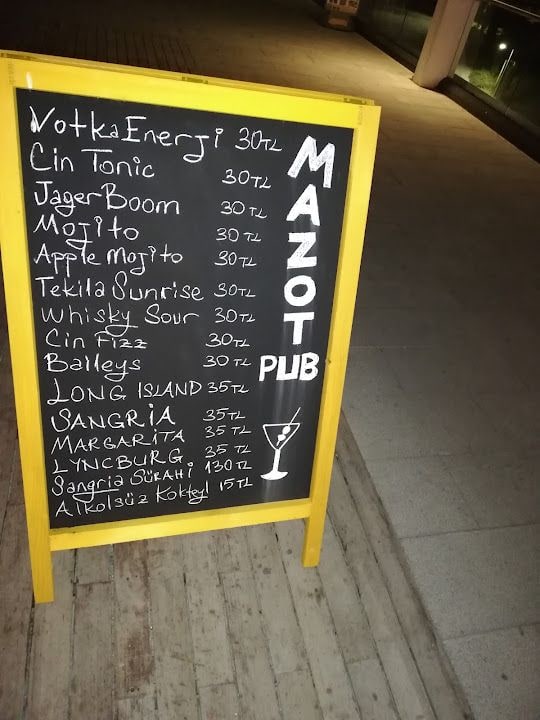 VotkaEnerji 30TL
Cin Tonic 30TL
JagerBoom 30TL
Mojito 30TL
Apple Mojito 30TL
Tekila Sunrise 30TL
Whisky Sour 30TL
Cin Fizz 30TL
Baileys 30TL
LONG ISLAND 35TL
SANGRiA 35TL
MARGARiTA 35TL
LYNCBURG 35TL
Sangria SÜRAHi 130TL
Alkolsüz Kokteyl 15TL
MAZOT
PUB